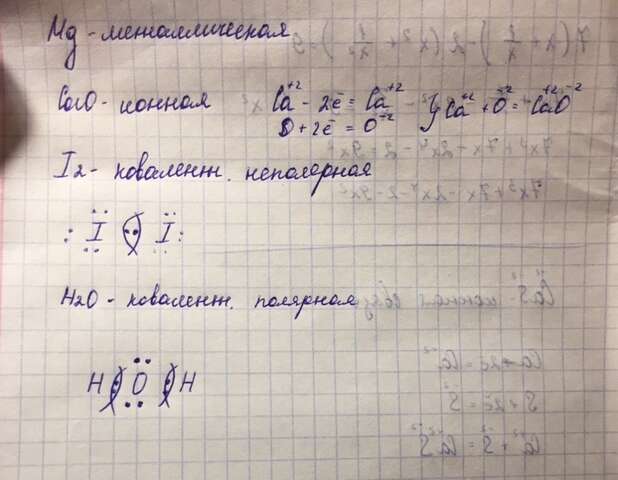 Mg - металлическая
CaO - ионная Ca⁺² - 2ē = Ca⁺² Ca⁺² + O⁻² = Ca⁺²O⁻²
O + 2ē = O⁻²
I2 - ковалентн. неполярная
: I : I :
H2O - ковалентн. полярная
H : O : H